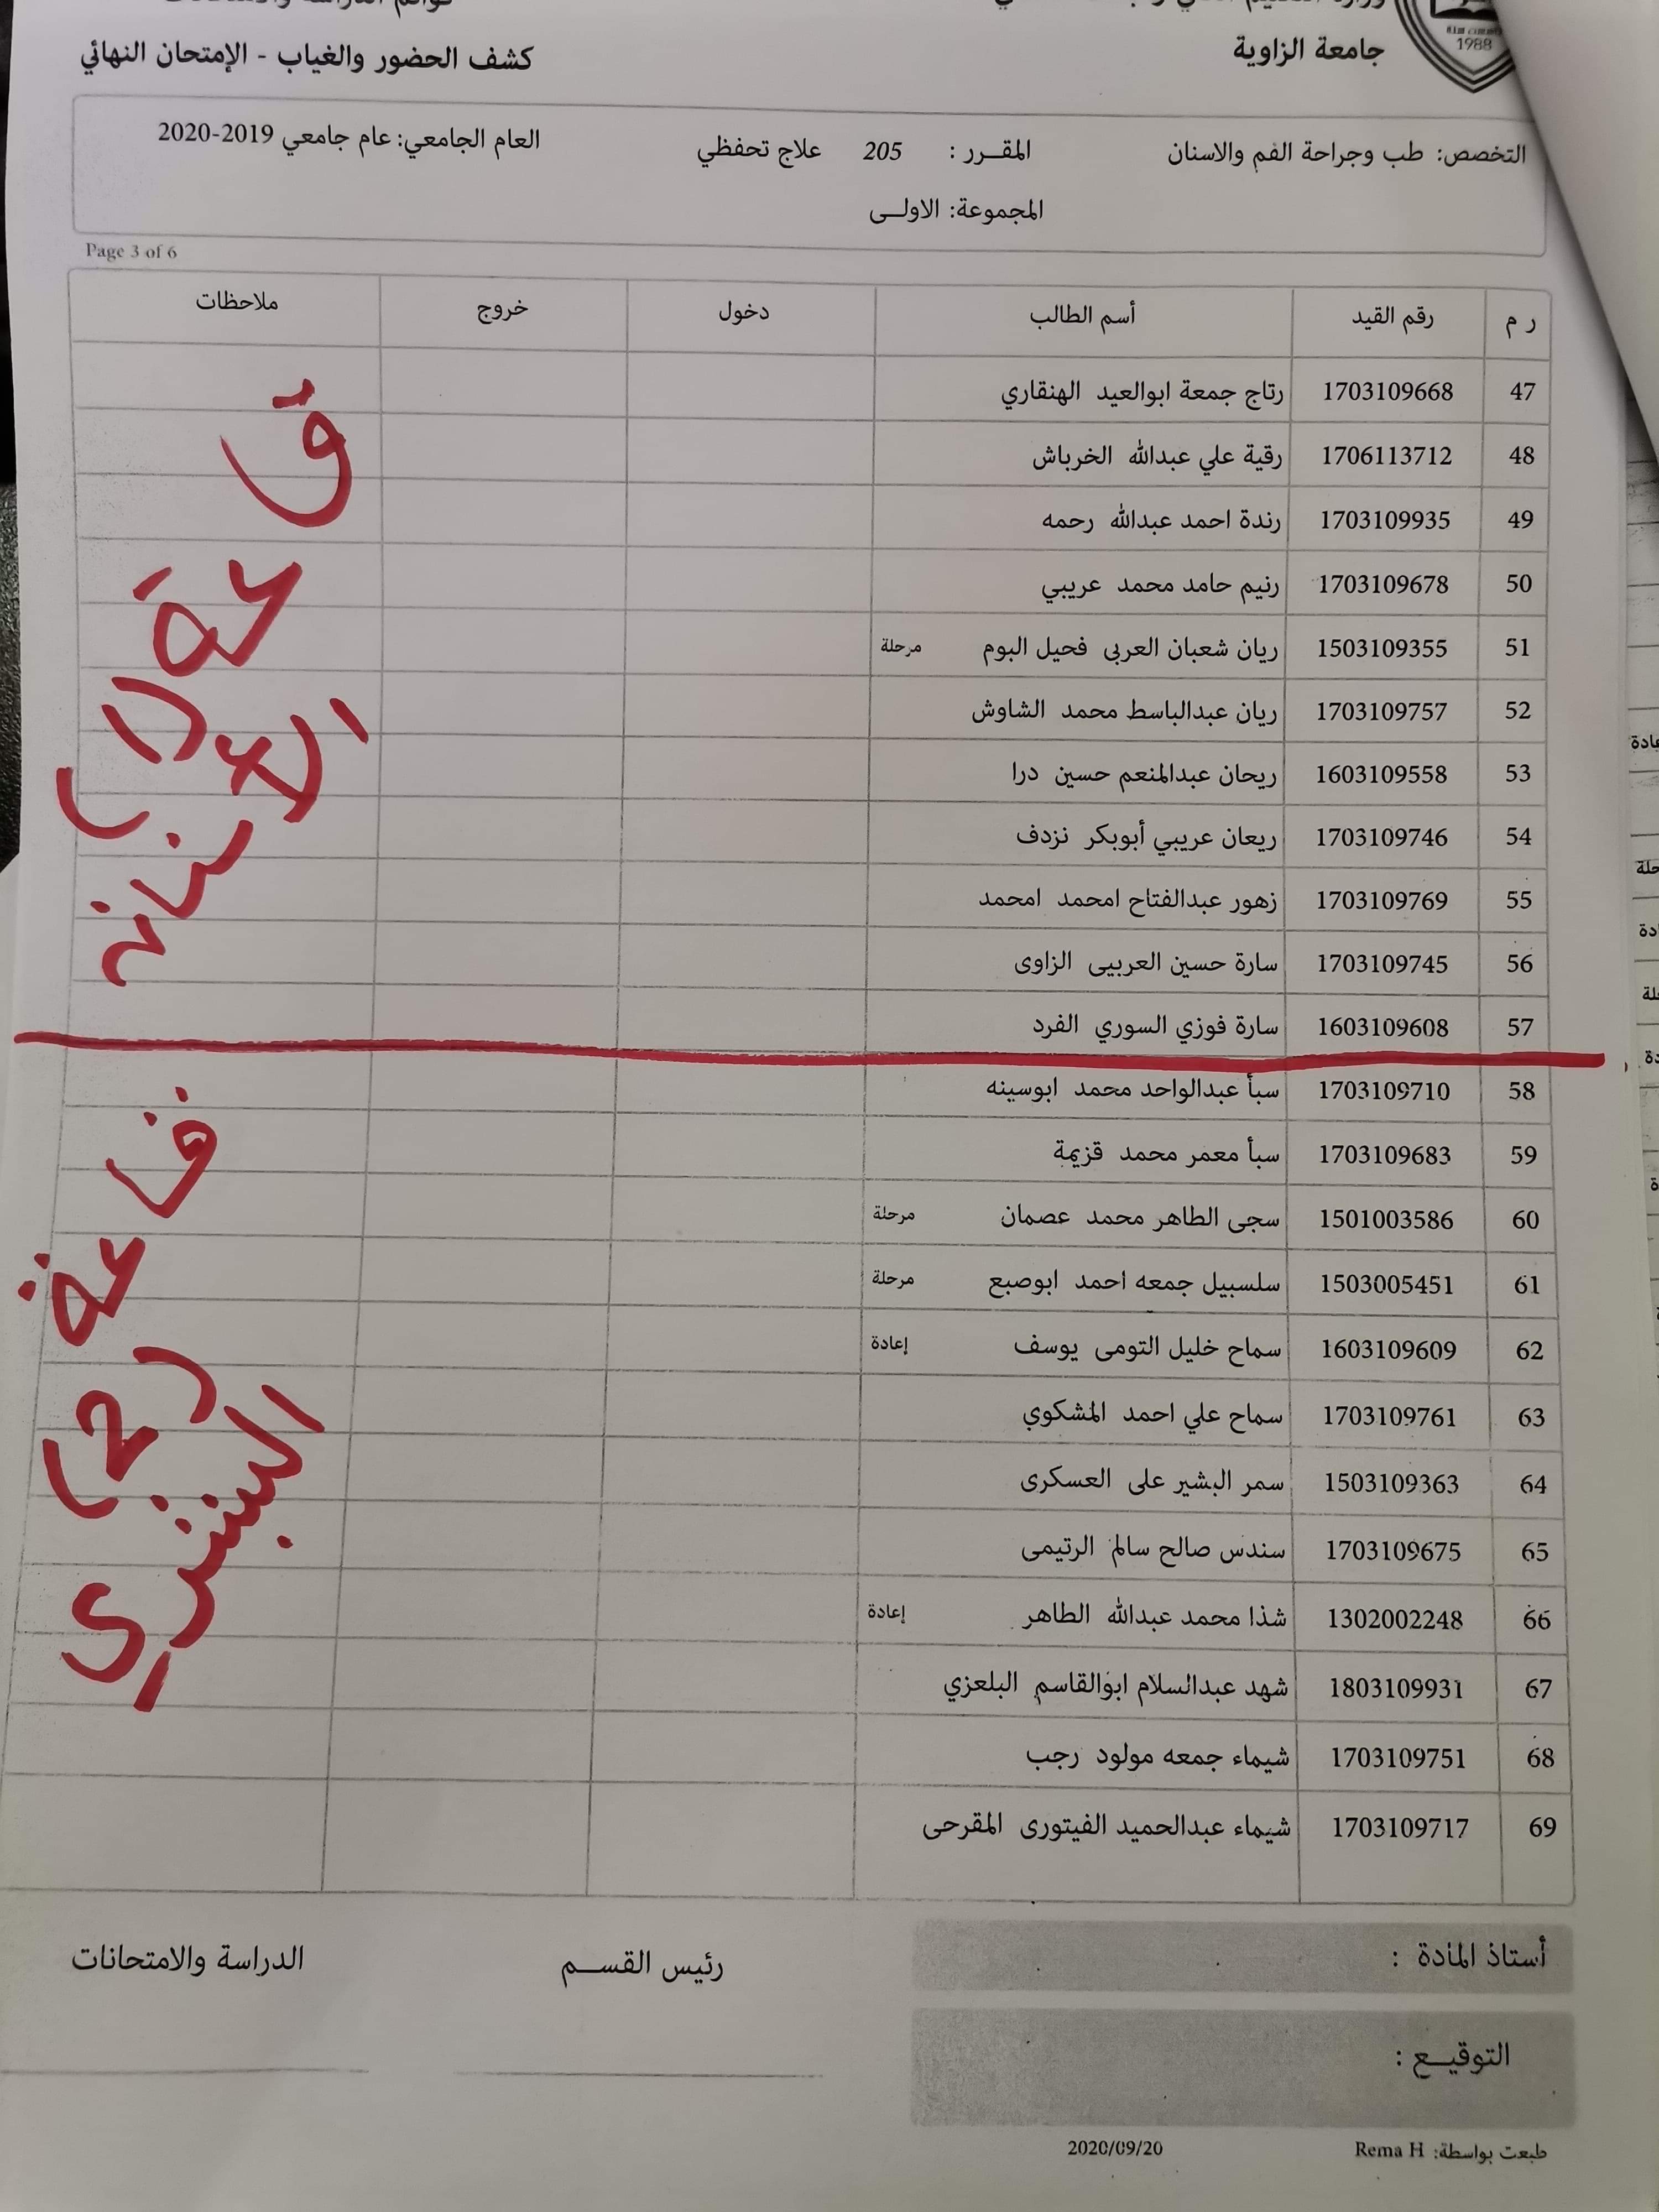 جامعة الزاوية
كشف الحضور والغياب - الإمتحان النهائي
1988
التخصص: طب وجراحة الفم والاسنان
المقــرر : 205 علاج تحفظي
العام الجامعي: عام جامعي 2019-2020
المجموعة: الاولــى
Page 3 of 6
ر م رقم القيد أسم الطالب دخول خروج ملاحظات
47 1703109668 رتاج جمعة ابوالعيد الهنقاري
48 1706113712 رقية علي عبدالله الخرباش
49 1703109935 رندة احمد عبدالله رحمه
50 1703109678 رنيم حامد محمد عريبي
51 1503109355 ريان شعبان العربى فحيل البوم مرحلة
52 1703109757 ريان عبدالباسط محمد الشاوش
53 1603109558 ريحان عبدالمنعم حسين درا
54 1703109746 ريعان عريبي أبوبكر نزدف
55 1703109769 زهور عبدالفتاح امحمد امحمد
56 1703109745 سارة حسين العربيى الزاوى
57 1603109608 سارة فوزي السوري الفرد
58 1703109710 سبأ عبدالواحد محمد ابوسينه
59 1703109683 سبأ معمر محمد قزيمة
60 1501003586 سجى الطاهر محمد عصمان مرحلة
61 1503005451 سلسبيل جمعه احمد ابوصبع مرحلة
62 1603109609 سماح خليل التومى يوسف إعادة
63 1703109761 سماح علي احمد المشكوي
64 1503109363 سمر البشير على العسكرى
65 1703109675 سندس صالح سالم الرتيمى
66 1302002248 شذا محمد عبدالله الطاهر إعادة
67 1803109931 شهد عبدالسلام ابوالقاسم البلعزي
68 1703109751 شيماء جمعه مولود رجب
69 1703109717 شيماء عبدالحميد الفيتورى المقرحى
الأسنان
قاعة (2)
البشري
أستاذ المادة :
رئيس القســم
الدراسة والامتحانات
التوقيــع :
طبعت بواسطة: Rema H
2020/09/20